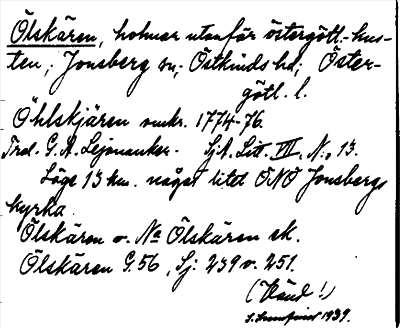 Ölskären, holmar utanför östergött.-kus-
ten; Jonsberg sn; Östkinds hd; Öster-
götl. l.
Öhlskjären omkr. 1774-76.
Trol. G. A. Lejonanker. Sj A. Litt. VII. N:o 13.
Läge 13 km. något litet ONO Jonsbergs
kyrka.
Ölskären o. Na Ölskären ek.
Ölskären G.56, Sj: 239 o. 251.
(Vänd!)
1939.